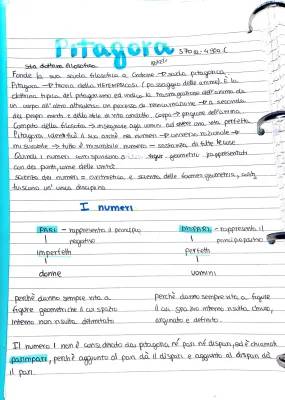 Pitagora 570 a.-490 a.C
sta dottore filosofica
Fonda la sua scuola filosofica a Crotone → scuola pitagorica
Pitagora → teoria della METEMPSICOSI (passaggio delle anime). È la
dottrina tipica del pitagorismo ed indica la trasmigrazione dell'anima da
un corpo all'altro attraverso un processo di reincarnazione → a seconda
dei propri meriti e dello stile di vita condotto. Corpo → prigione dell'anima
Compito della filosofia → insegnare agli uomini ad avere una vita perfetta
Pitagora identificò il suo archè nei numeri → universo razionale →
misurabile → tutto è misurabile numero - sostanza di tutte le cose
Quindi i numeri corrispondono a figur. geometric rappresentati
con dei punti, come delle unità
scienza dei numeri = aritmetica e scienza delle forme = geometria,
costituiscono un'unica disciplina
I numeri
PARI - rappresenta il principio
negativo
imperfetti
donne
DISPARI - rappresenta il
principio positivo
perfetti
uomini
perchè danno sempre vita a
figure geometriche il cui spazio
interno non risulta delimitato
perchè danno sempre vita a figure
il cui spazio interno risulta chiuso,
arginato e definito.
Il numero 1 non è considerato da pitagora né pari né dispari, ed è chiamato
parimpari, perchè aggiunto al pari dà il dispari e aggiunto al dispari dà
il pari